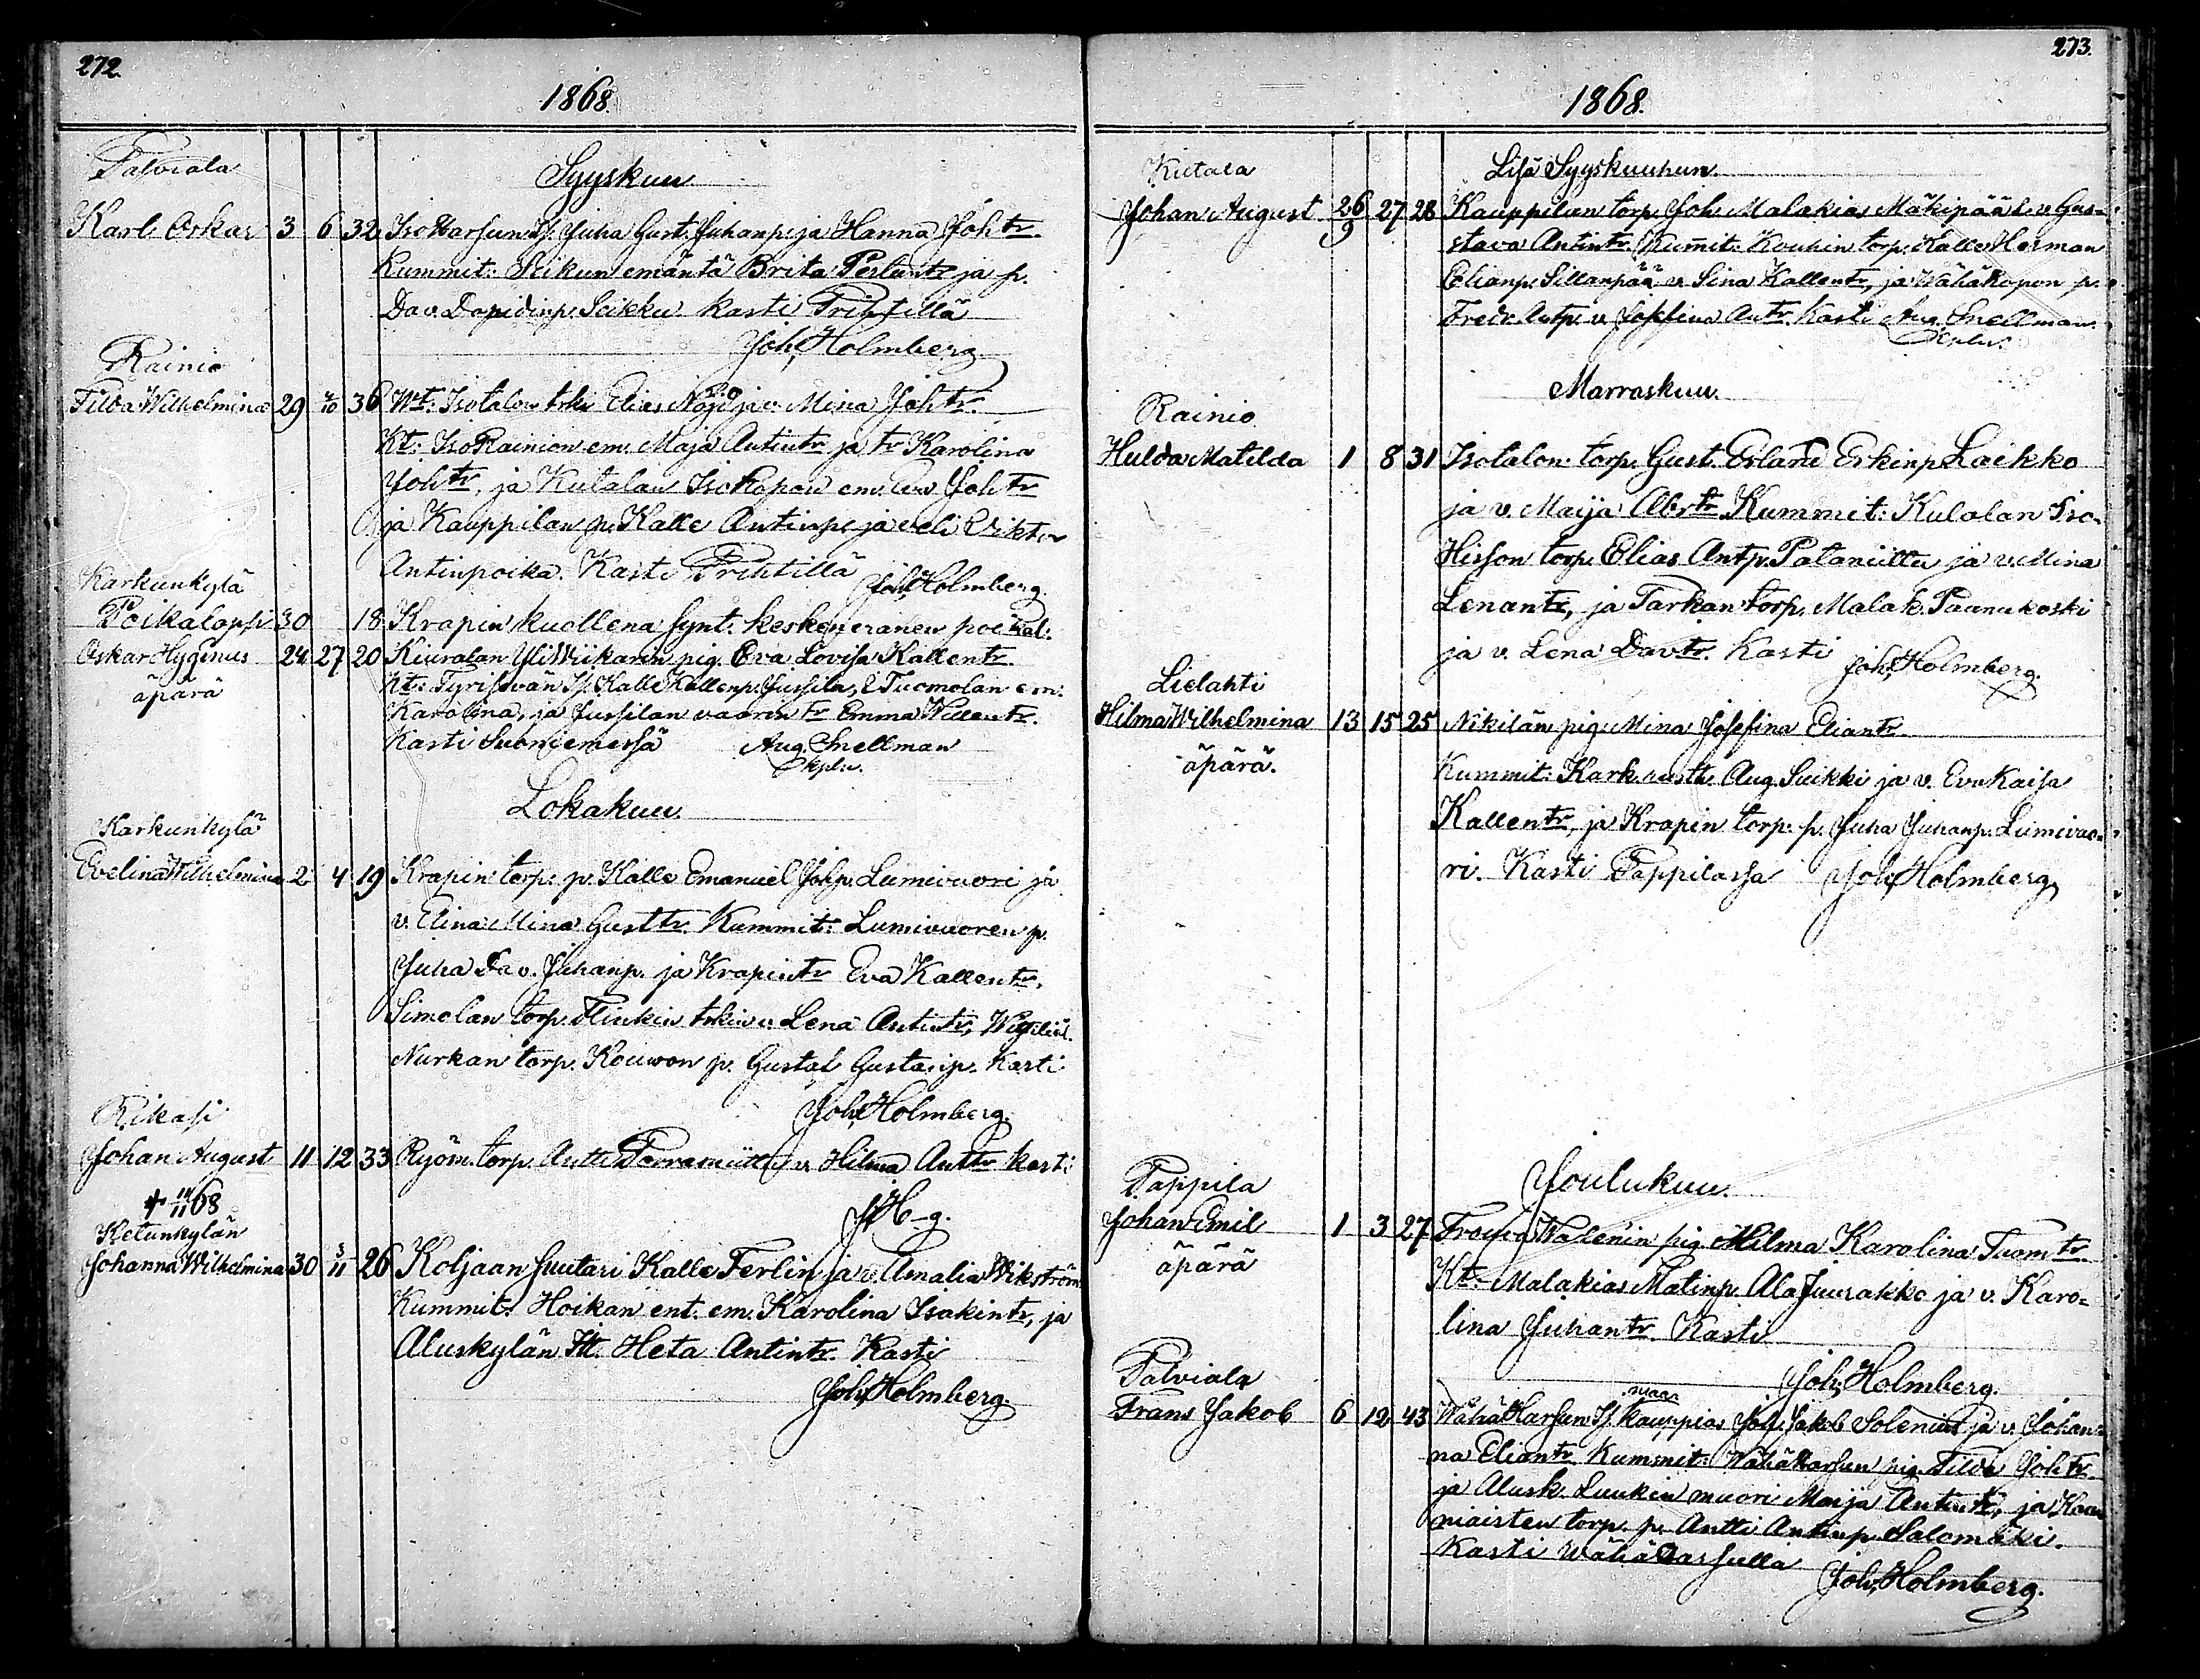 272.
1868.
Palviala
Syyskuu.
Karl Oskar 3 6 32 IsoHarsun Juha Gust. Juhanp. ja Hanna Johtr.
Kummit: Seikun emäntä Brita ja p.
Dav. Seikku kasti Prihtillä
Joh. Holmberg.
Rainio
Tilda Wilhelmina 29 36 Wt: Isotalon Elias ja v. Mina Johtr.
Kt: IsoRainion em. Maja Antintr ja tr Karolina
Johtr, ja Kutalan Isokopon em. Eva Johtr
ja Kauppilan p. Kalle Antinp. ja veli Viktor
Antinpoika. Kasti Prihtillä Joh. Holmberg.
Karkunkylä
Poikalapsi 30 18 Krapin kuollena synt. keskeneränen
Oskar Hyginus 24 27 20 Kiuralan YliWiikarin pig. Eva Lovisa Kallentr.
äpärä Kt: Tyrisevän Kalle Kallenp. Jussila, Tuomolan em.
Karolina, ja Jussilan vaarin tr Emma Willentr.
Kasti Suoniemessä Aug. Snellman
kpln.
Lokakuu.
Karkunkylä
Evelina Wilhelmina 2 4 19 Krapin torp. p. Kalle Emanuel Johp. Lumivuori ja
v. Elina Mina Gusttr. Kummit: Lumivuoren p.
Juha Dav. Juhanp. ja Krapin tr Eva Kallentr.
Simolan torp. Flinkin v. Lena Antintr,
Nurkan torp. Kouwon p. Gustaf Gustavip. Kasti
Joh. Holmberg.
Rikasi
Johan August 11 12 33 Ryöm. torp. Antti Porraniittu v. Hilma Anttr. kasti
+ 11/11 68 J H-g.
Ketunkylän
Johanna Wilhelmina 30 3/11 26 Koljaan suutari Kalle Ferlin ja v. Amalia Wikström
Kummit. Hoikan ent. em. Karolina Isakintr, ja
Aluskylän It. Heta Antintr. Kasti
Joh. Holmberg.
273.
1868.
Kutala
Lisä Syyskuuhun.
Johan August 26/9 27 28 Kauppilan torp. Joh. Malakias Mäkipää v. Gus-
stava Antintr. Kummit: Kouhin torp. Kalle Herman
Elianp. Sillanpää v. Sina Kallentr, ja Wähäkopon p.
Fredr. Antp. v. Josefina Antr. Kasti Aug. Snellman.
Kpln.
Marraskuu.
Rainio
Hulda Matilda 1 8 31 Isotalon torp. Gust. Erland Erkinp. Laikko
ja v. Maija Abrtr Kummit: Kulalan Iso-
Hisson torp. Elias Antp. Pataniittu ja v. Mina
Lenantr, ja Tarkan torp. Malak. Paanukoski
ja v. Lena Davtr. Kasti Joh. Holmberg.
Lielahti
Hilma Wilhelmina 13 15 25 Nikilän pig. Mina Josefina Eliantr
äpärä. Kummit: Kark. Aug. Suikki ja v. Eva Kaisa
Kallentr, ja Krapin torp. p. Juha Juhanp. Lumivuo-
ri. Kasti Pappilassa Joh. Holmberg,
Joulukuu.
Pappila
Johan Emil 1 3 27 Walenin pig. Milma Karolina Tuomtr.
äpärä Kt: Malakias Matinp. AlaJuurakko ja v. Karo-
lina Juhantr. Kasti
Joh. Holmberg.
Palviala
Frans Jakob 6 12 43 WähäHarsun maa kauppias Joh. Jakob Solenius ja v. Johan-
na Eliantr Kummit: WähäHarsun pig. Tilda Johtr
ja Alusk. Luukin muori Maija Antintr, ja
niaisten torp. p. Antti Antinp. Salomäki.
Kasti WähäHarsulla Joh. Holmberg.